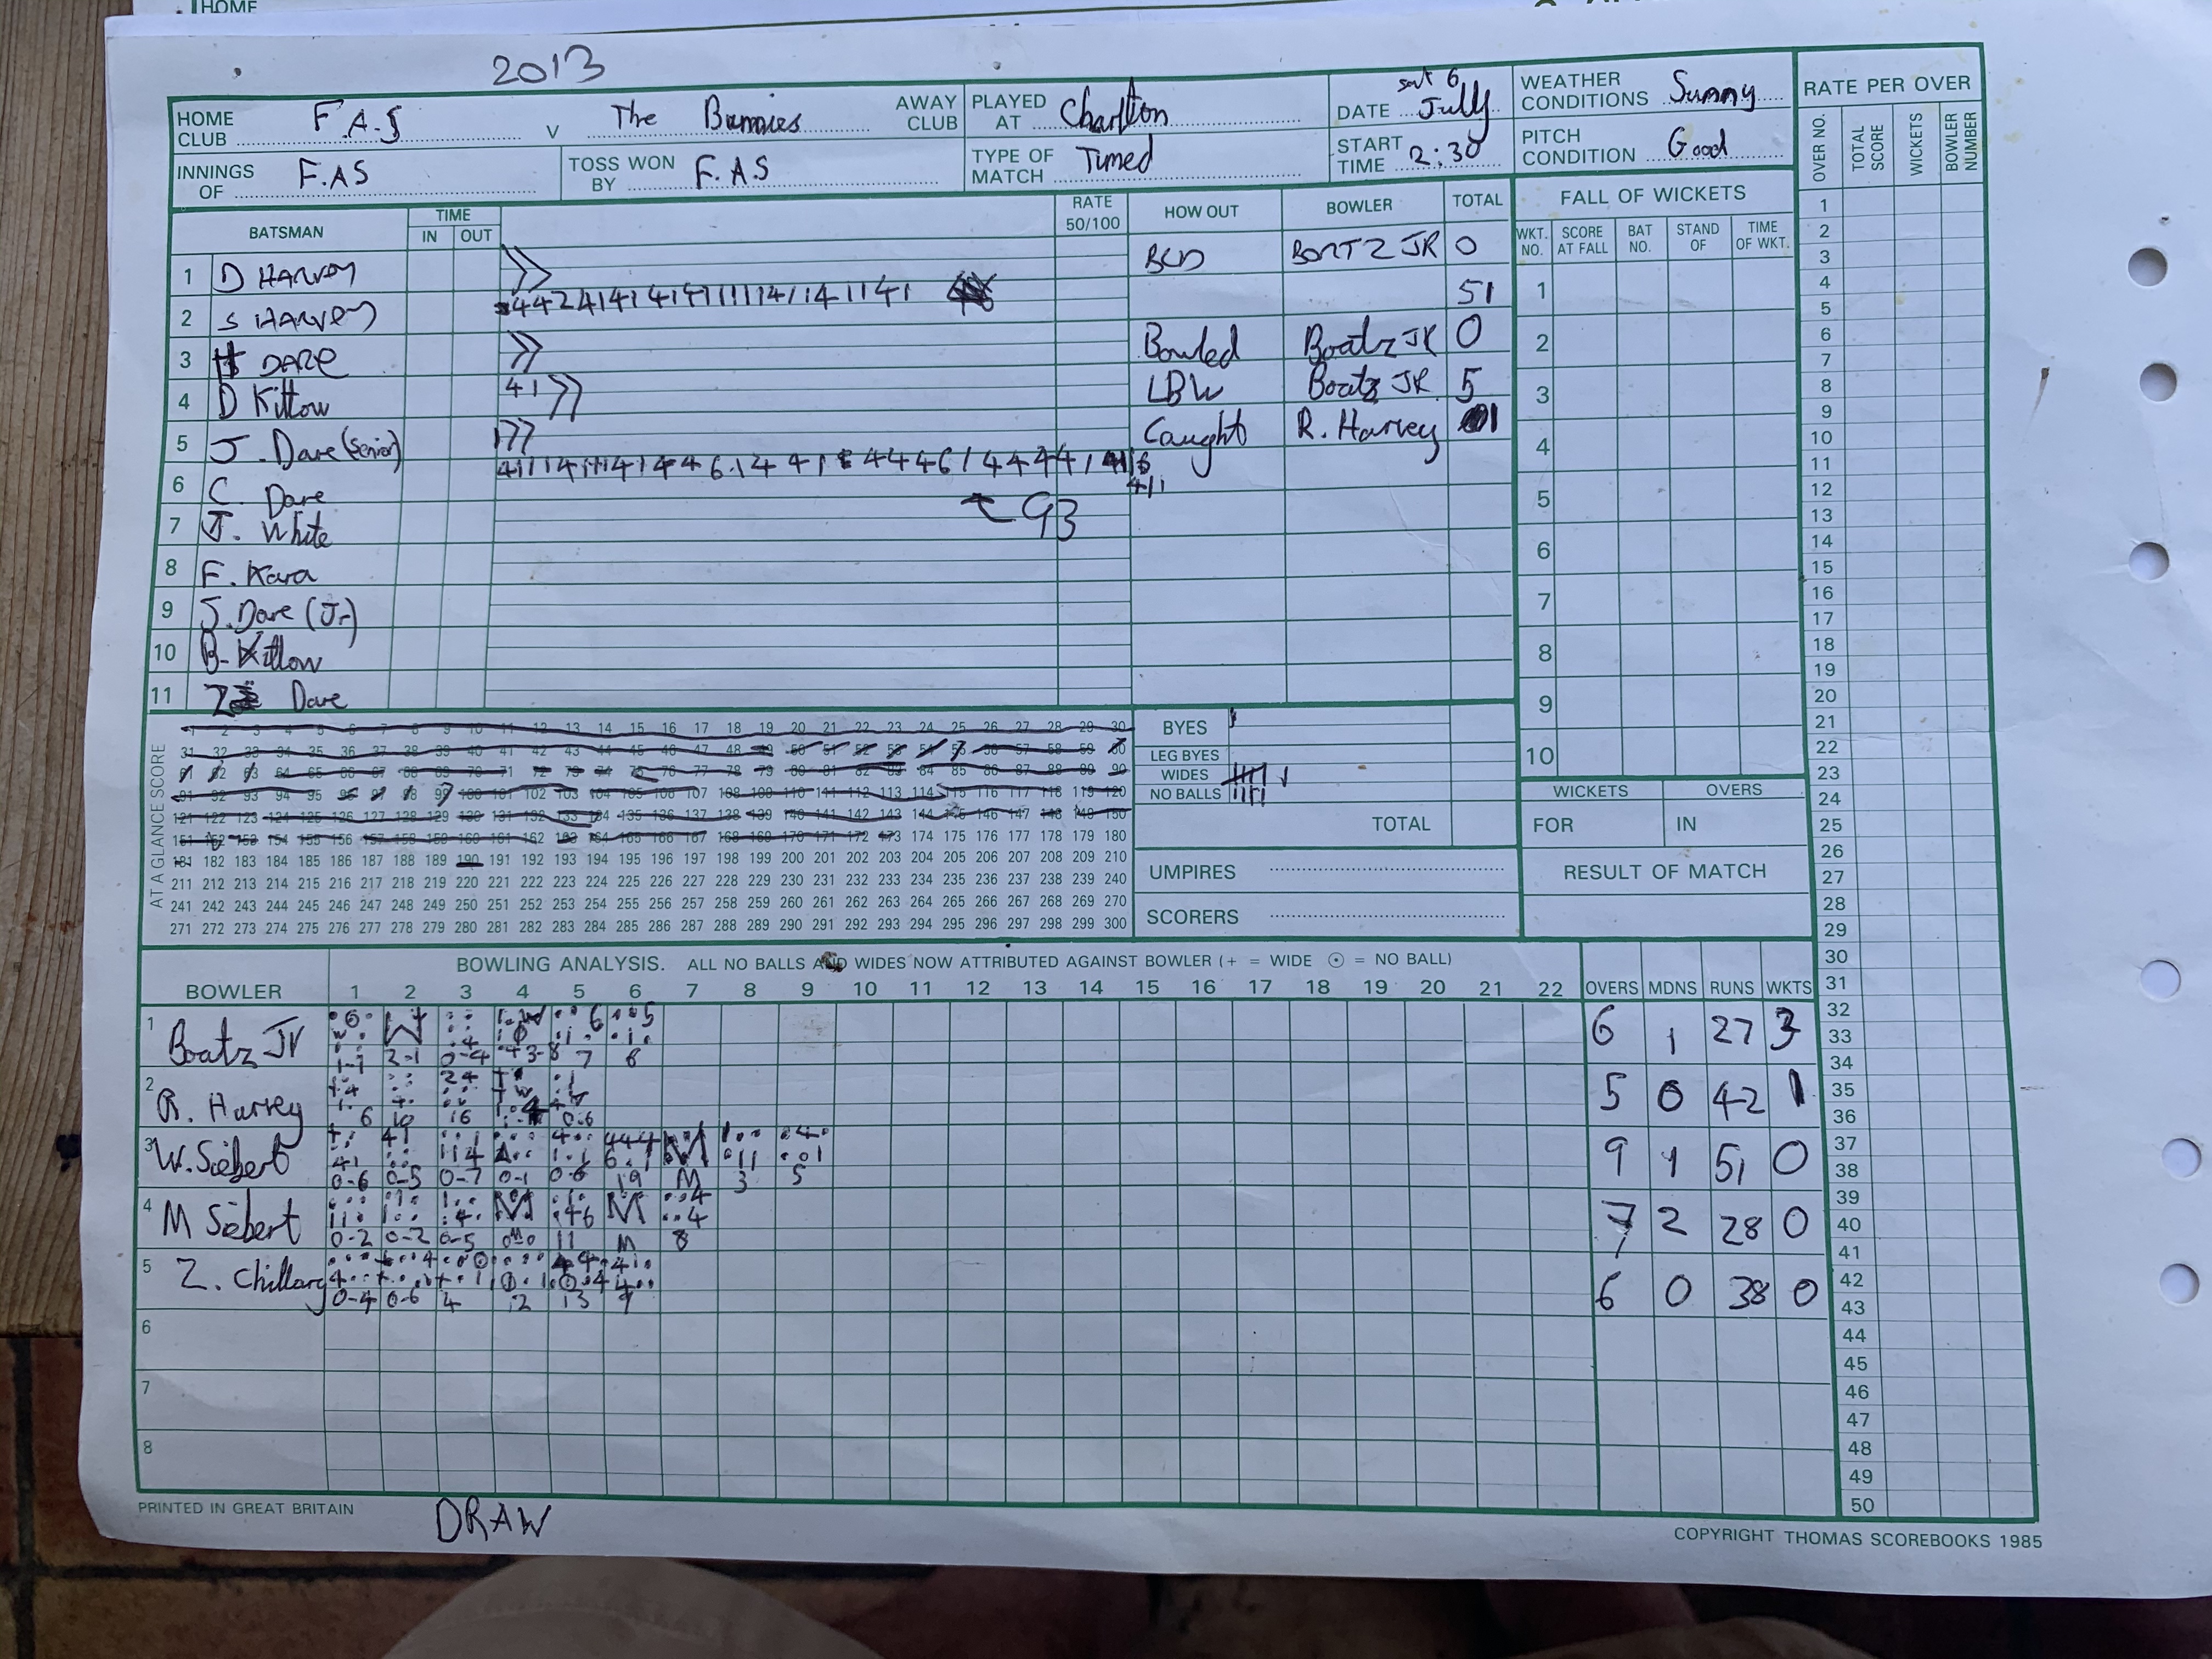 HOME
2013
HOME CLUB F.A.S v The Bunnies AWAY CLUB
PLAYED AT Charlton
DATE Sat 6 Jully
WEATHER CONDITIONS Sunny
INNINGS OF F.A.S
TOSS WON BY F.A.S
TYPE OF MATCH Timed
START TIME 2:30
PITCH CONDITION Good
RATE PER OVER
OVER NO. TOTAL SCORE WICKETS BOWLER NUMBER
BATSMAN TIME IN OUT RATE 50/100 HOW OUT BOWLER TOTAL
FALL OF WICKETS
WKT. NO. SCORE AT FALL BAT NO. STAND OF TIME OF WKT.
1 D HARVEY 0
2 S HARVEY 51
3 DARE Bowled Boatz JR 0
4 D Kittow 41 LBW Boatz JR 5
5 J. Dare (Senior) 1 Caught R. Harvey 1
6 C. Dare
93
7 J. White
8 F. Kara
9 J. Dare (Jr)
10 B. Kittow
11 Dare
1 2 3 4 5 6 7 8 9 10
AT A GLANCE SCORE
1 2 3 4 5 6 7 8 9 10 11 12 13 14 15 16 17 18 19 20 21 22 23 24 25 26 27 28 29 30
31 32 33 34 35 36 37 38 39 40 41 42 43 44 45 46 47 48 49 50 51 52 53 54 55 56 57 58 59 60
61 62 63 64 65 66 67 68 69 70 71 72 73 74 75 76 77 78 79 80 81 82 83 84 85 86 87 88 89 90
91 92 93 94 95 96 97 98 99 100 101 102 103 104 105 106 107 108 109 110 111 112 113 114 115 116 117 118 119 120
121 122 123 124 125 126 127 128 129 130 131 132 133 134 135 136 137 138 139 140 141 142 143 144 145 146 147 148 149 150
151 152 153 154 155 156 157 158 159 160 161 162 163 164 165 166 167 168 169 170 171 172 173 174 175 176 177 178 179 180
181 182 183 184 185 186 187 188 189 190 191 192 193 194 195 196 197 198 199 200 201 202 203 204 205 206 207 208 209 210
211 212 213 214 215 216 217 218 219 220 221 222 223 224 225 226 227 228 229 230 231 232 233 234 235 236 237 238 239 240
241 242 243 244 245 246 247 248 249 250 251 252 253 254 255 256 257 258 259 260 261 262 263 264 265 266 267 268 269 270
271 272 273 274 275 276 277 278 279 280 281 282 283 284 285 286 287 288 289 290 291 292 293 294 295 296 297 298 299 300
BYES
LEG BYES
WIDES
NO BALLS
TOTAL
UMPIRES
SCORERS
WICKETS OVERS
FOR IN
RESULT OF MATCH
BOWLING ANALYSIS. ALL NO BALLS AND WIDES NOW ATTRIBUTED AGAINST BOWLER (+ = WIDE ⊙ = NO BALL)
BOWLER 1 2 3 4 5 6 7 8 9 10 11 12 13 14 15 16 17 18 19 20 21 22 OVERS MDNS RUNS WKTS
1 Boatz Jr 6 1 27 3
2 R. Harvey 6 10 16 0-6 5 0 42 1
3 W. Siebert 0-6 0-5 0-7 0-1 0-6 19 M 3 5 9 1 51 0
4 M Siebert 0-2 0-2 0-5 11 M 8 7 2 28 0
5 Z. Chillary 0-4 0-6 4 12 13 9 6 0 38 0
6
7
8
1 2 3 4 5 6 7 8 9 10 11 12 13 14 15 16 17 18 19 20 21 22 23 24 25 26 27 28 29 30 31 32 33 34 35 36 37 38 39 40 41 42 43 44 45 46 47 48 49 50
PRINTED IN GREAT BRITAIN
DRAW
COPYRIGHT THOMAS SCOREBOOKS 1985